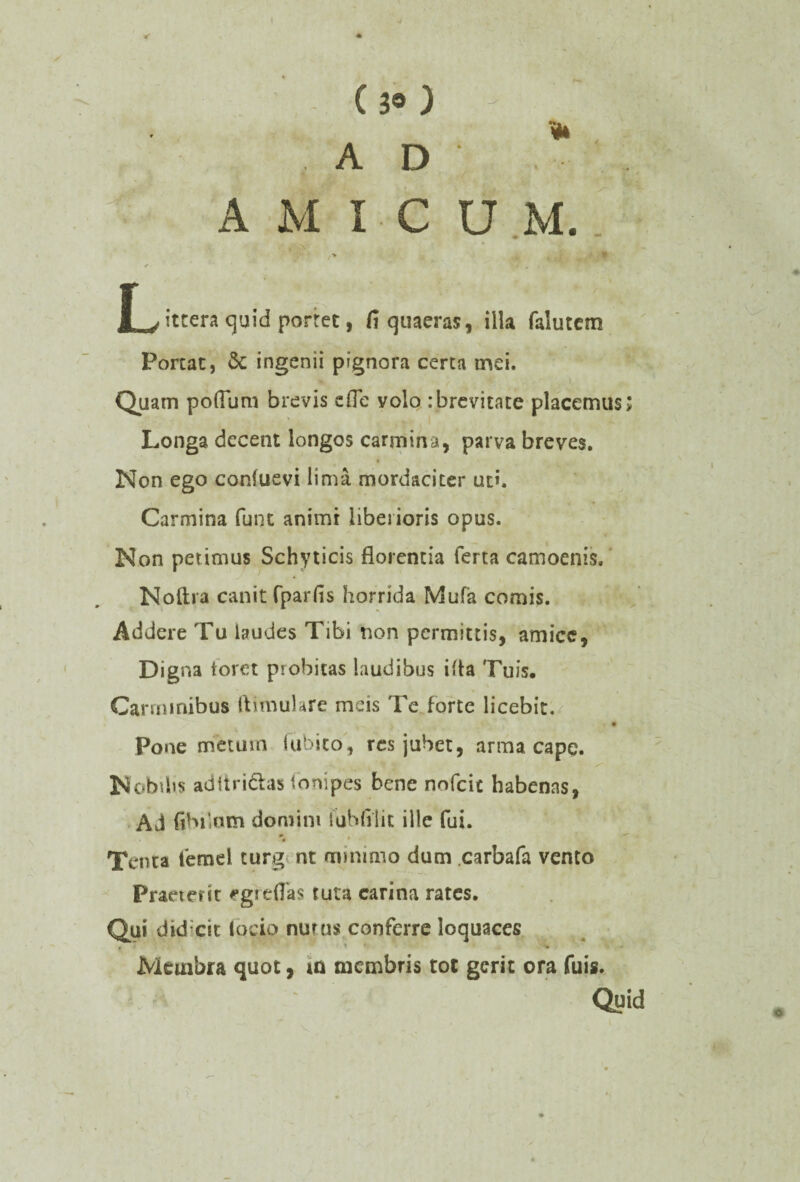 ( 30 )
A D
A M I C U M.
Littera quid portet, ſi quaeras, illa ſalutem
Portat, & ingenii pignora certa mei.
Quam poſſum brevis eſſe volo :brevitate placemus;
Longa decent longos carmina, parva breves.
Non ego conſuevi limâ mordaciter uti.
Carmina ſunt animi liberioris opus.
Non petimus Schyticis florentia ſerta camoenis.
Noſtra canit ſparſis horrida Muſa comis.
Addere Tu laudes Tibi non permittis, amice,
Digna foret probitas laudibus iſta Tuis.
Carminibus ſtimulare meis Te forte licebit.
Pone metum ſubito, res jubet, arma cape.
Nobilis adſtrictas ſonipes bene noſcit habenas,
Ad ſibilum domini ſubſilit ille ſui.
Tenta ſemel turgent minimo dum carbaſa vento
Praeterit egreſſas tuta carina rates.
Qui didicit ſocio nutus conferre loquaces
Membra quot, in membris tot gerit ora ſuis.
Quid